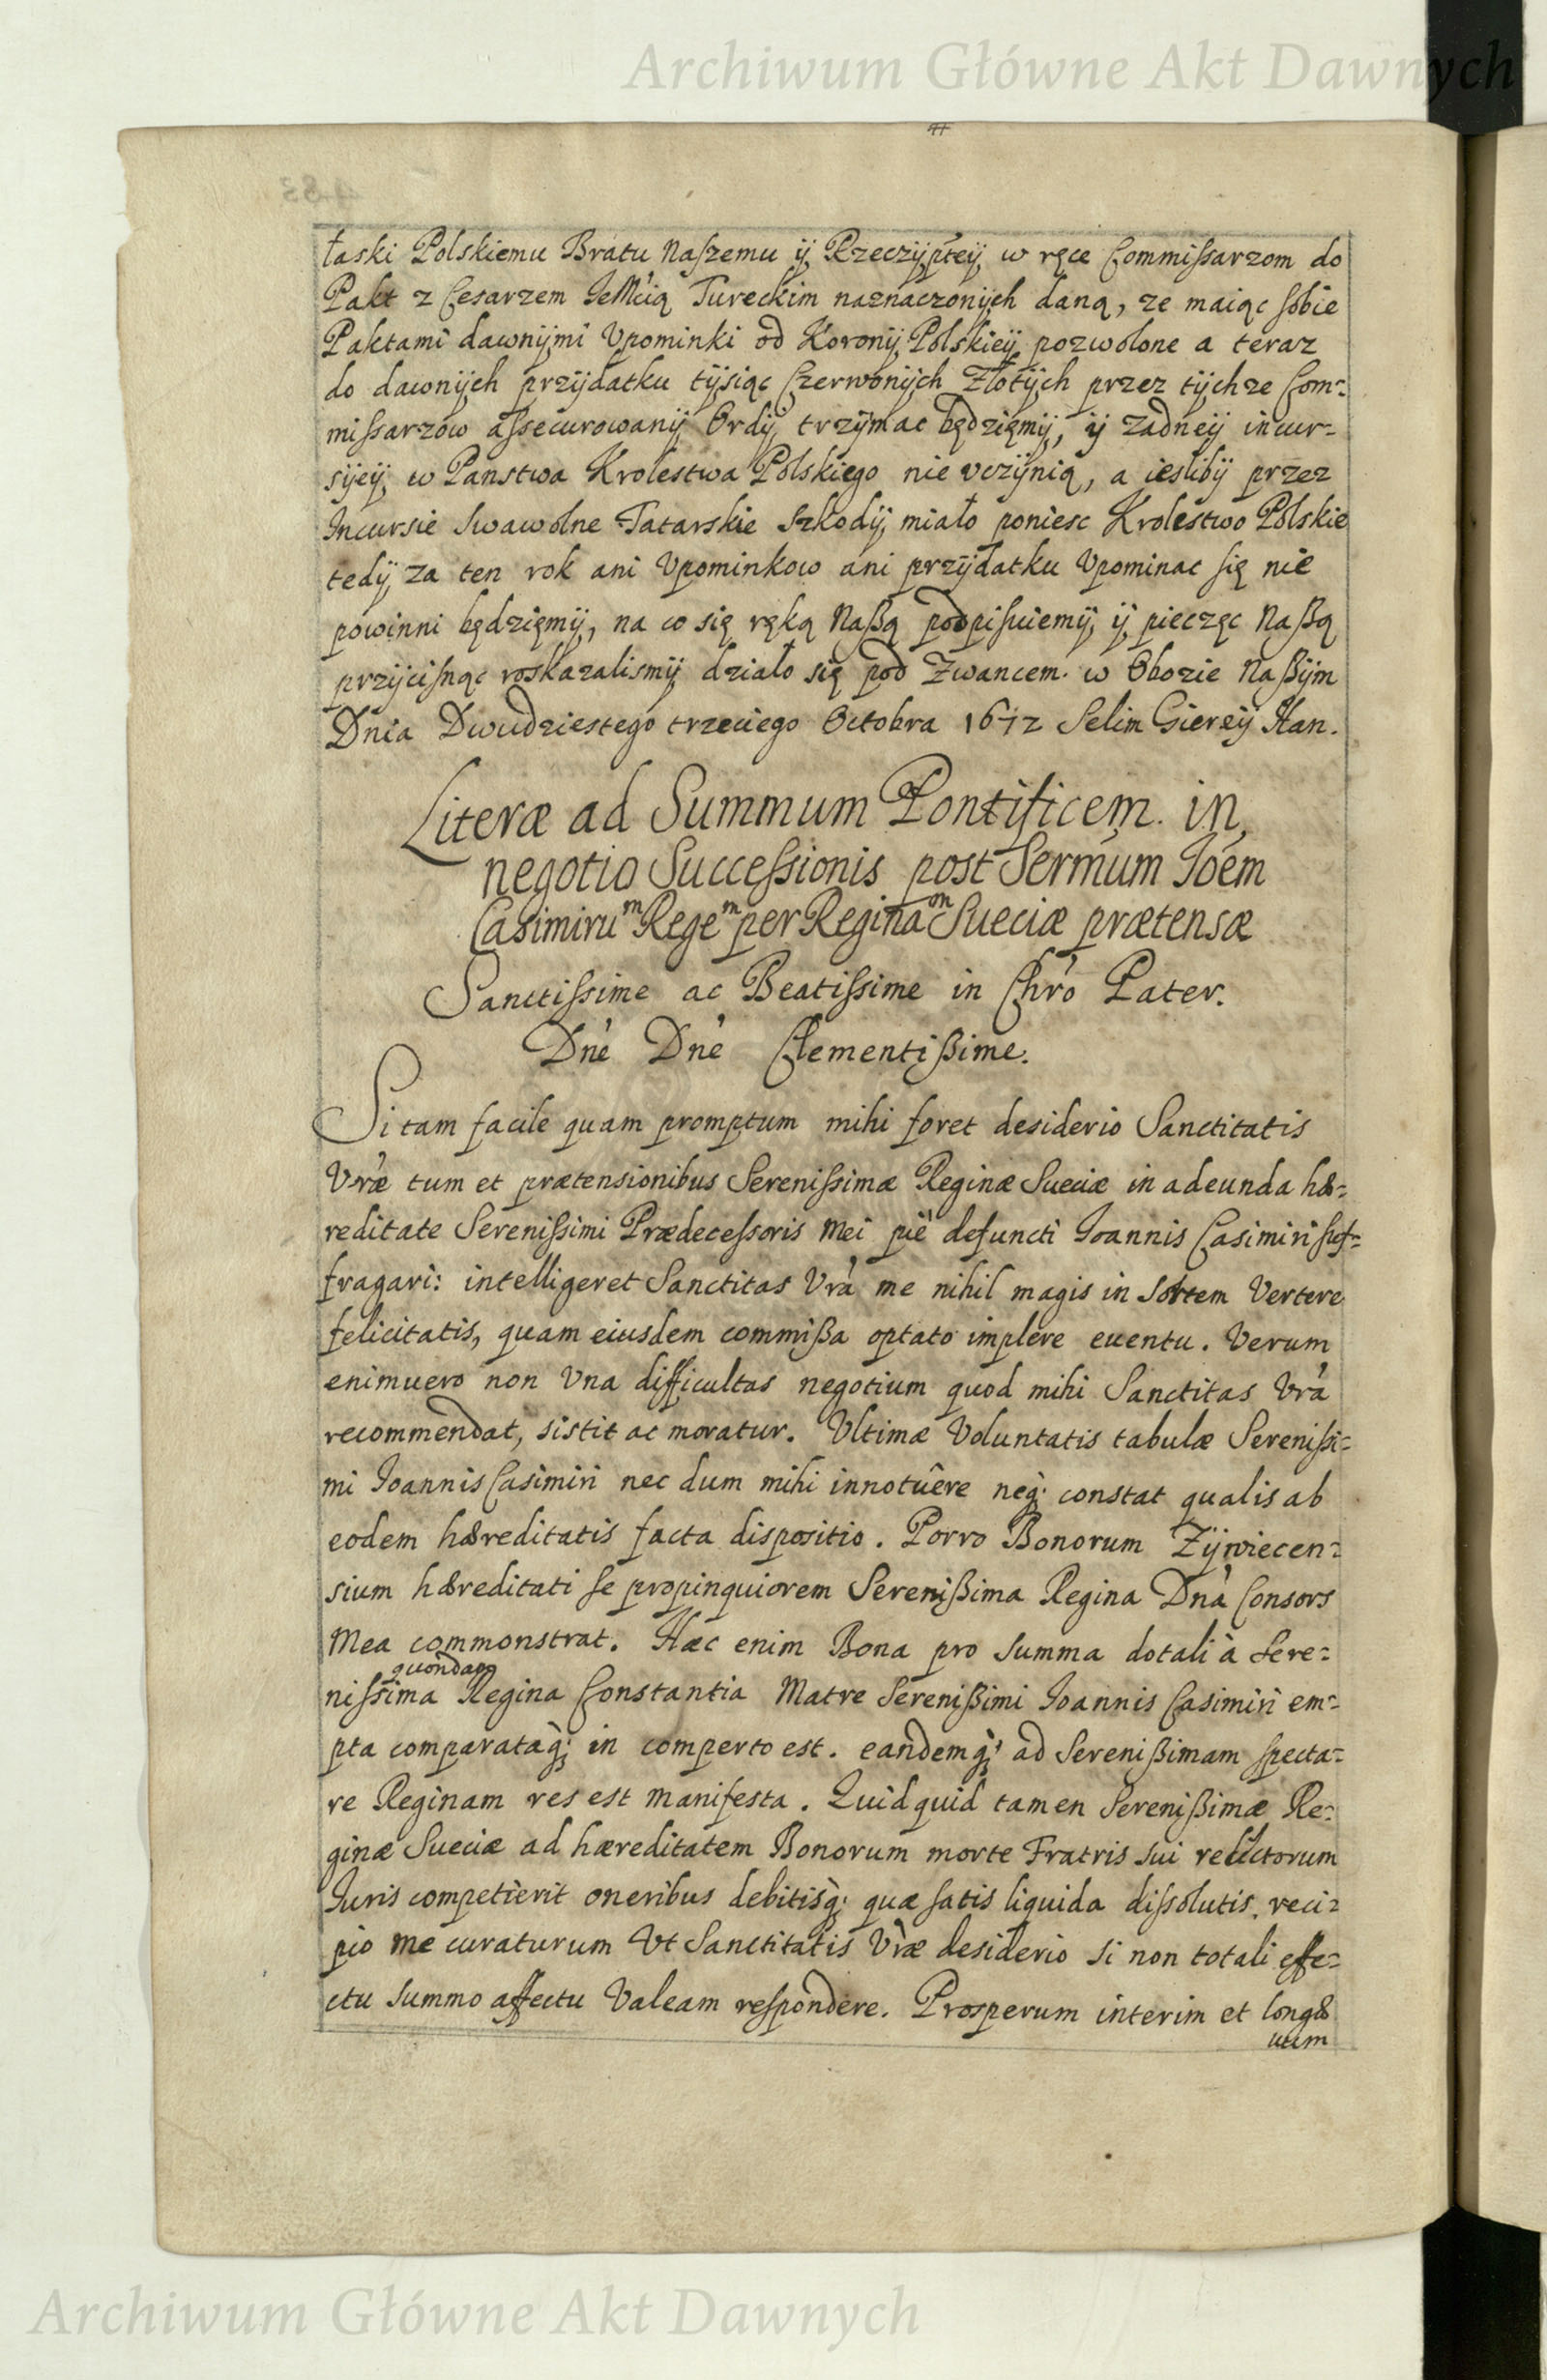 Archiwum Główne Akt Dawnych
483
łaski Polskiemu Bratu Naszemu ÿ Rzeczÿpteÿ w ręce Commissarzom do
Pakt z Cesarzem JeMcią Tureckim naznaczonÿch daną, ze maiąc sobie
Paktami dawnÿmi Vpominki od Koronÿ Polskieÿ pozwolone a teraz
do dawnÿch przÿdatku tÿsiąc Czerwonÿch Złotÿch przez tÿchze Com-
missarzow assecurowanÿ Ordÿ trzÿmac będzięmÿ, ÿ zadneÿ incur-
sÿeÿ w Panstwa Krolestwa Polskiego nie vczÿnią, a ieslibÿ przez
Incursie Swawolne Tatarskie Szkodÿ miało poniesc Krolestwo Polskie
tedÿ za ten rok ani Vpominkow ani przÿdatku Vpominac się nie
powinni będzięmÿ, na co się ręką Naßą podpisuiemÿ ÿ pieczęc Naßą
przÿcisnąc roskazalismÿ działo się pod Zwancem. w Obozie Naßÿm
Dnia Dwudziestego trzeciego Octobra 1672 Selim Giereÿ Han.
Literæ ad Summum Pontificem. in
negotio Successionis post Sermum Joem
Casimirum Regem per Reginam Sueciæ prætensæ
Sanctissime ac Beatissime in Chro Pater.
Dne Dne Clementißime.
Si tam facile quam promptum mihi foret desiderio Sanctitatis
Vræ tum et prætensionibus Serenissimæ Reginæ Sueciæ in adeunda hæ-
reditate Serenissimi Prædecessoris Mei piè defuncti Joannis Casimiri suf-
fragari: intelligeret Sanctitas Vra me nihil magis in Sortem Vertere
felicitatis, quam eiusdem commißa optato implere euentu. Verum
enimuero non Vna difficultas negotium quod mihi Sanctitas Vra
recommendat, sistit ac moratur. Vltimæ Voluntatis tabulæ Serenissi-
mi Joannis Casimiri nec dum mihi innotuêre neq; constat qualis ab
eodem hæreditatis facta dispositio. Porro Bonorum Zÿwiecen-
sium hæreditati se propinquiorem Serenißima Regina Dna Consors
Mea commonstrat. Hæc enim Bona pro Summa dotali à Sere-
quondam
nissima Regina Constantia Matre Serenißimi Joannis Casimiri em-
pta comparataq; in comperto est. eandemq; ad Serenißimam specta-
re Reginam res est manifesta. Quidquid tamen Serenißimæ Re-
ginæ Sueciæ ad hæreditatem Bonorum morte Fratris sui relictorum
Juris competierit oneribus debitisq; quæ satis liquida dissolutis. reci-
pio me curaturum Vt Sanctitatis Vræ desiderio si non totali effe-
ctu summo affectu Valeam respondere. Prosperum interim et longæ
uum
Archiwum Główne Akt Dawnych